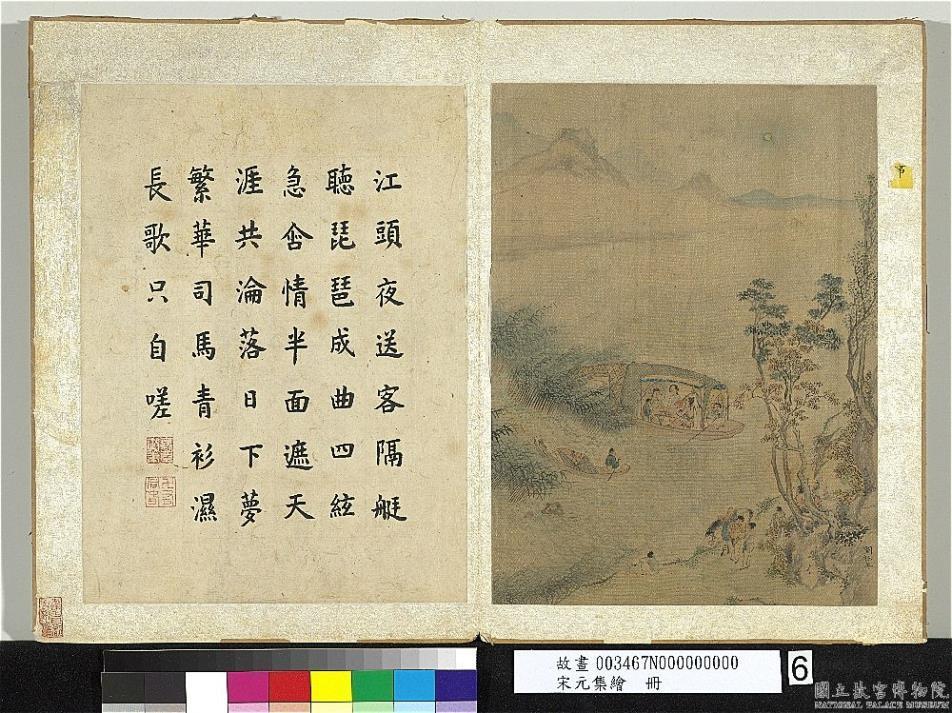 江頭夜送客隔艇
聽琵琶成曲四絃
急含情半面遮天
涯共淪落日下夢
繁華司馬青衫濕
長歌只自嗟
故畫 003467N000000000
宋元集繪 冊
6
國立故宮博物院
NATIONAL PALACE MUSEUM